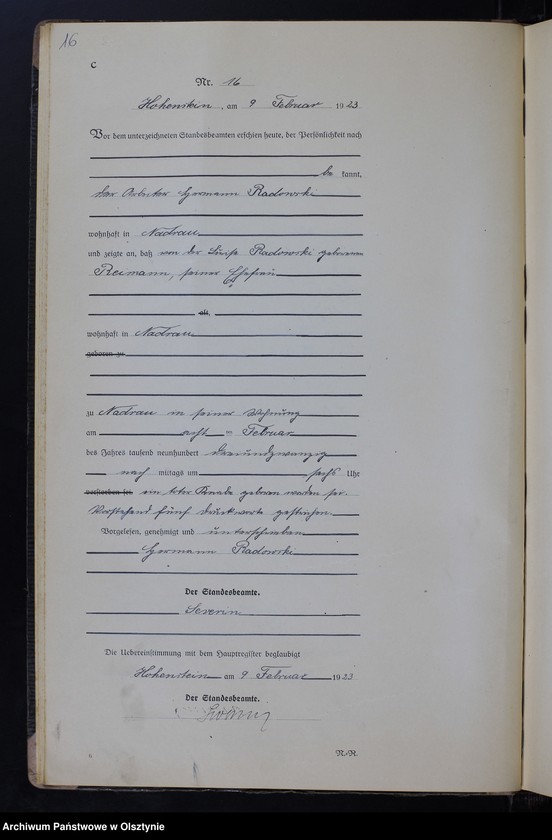 16
C
Nr. 16
Hohenstein, am 9 Februar 1923
Vor dem unterzeichneten Standesbeamten erschien heute, der Persönlichkeit nach
be kannt,
der Arbeiter Hermann Radowski
wohnhaft in Nadrau
und zeigte an, daß von der Luise Radowski geborenen
Reimann, seiner Ehefrau
als
wohnhaft in Nadrau
geboren zu
zu Nadrau in seiner Wohnung
am acht ten Februar
des Jahres tausend neunhundert dreiundzwanzig
nach mittags um sechs Uhr
verstorben sei ein toter Knabe geboren worden sei.
Vorstehend fünf Druckworte gestrichen.
Vorgelesen, genehmigt und unterschrieben
Hermann Radowski
Der Standesbeamte.
Severin
Die Uebereinstimmung mit dem Hauptregister beglaubigt
Hohenstein am 9 Februar 1923
Der Standesbeamte.
N.-R.
Archiwum Państwowe w Olsztynie